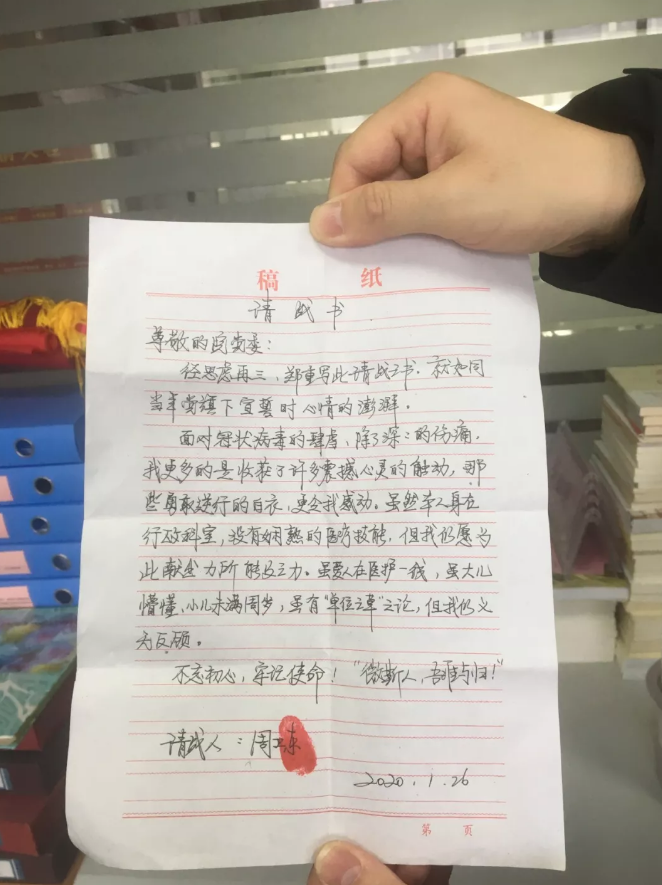 稿 纸
请战书
尊敬的院党委：
经思虑再三，郑重写此请战书，就如同
当年党旗下宣誓时心情的澎湃。
面对冠状病毒的肆虐，除了深深的伤痛，
我更多的是收获了许多震撼心灵的触动，那
些勇敢逆行的白衣，更令我感动。虽然本人身在
行政科室，没有娴熟的医疗技能，但我仍愿为
此献出力所能及之力。虽爱人在医护一线，虽大儿
懵懂、小儿未满周岁，虽有“单位之草”之论，但我仍义
无反顾。
不忘初心，牢记使命！“微斯人，吾谁与归！”
请战人：周
2020.1.26
第 页